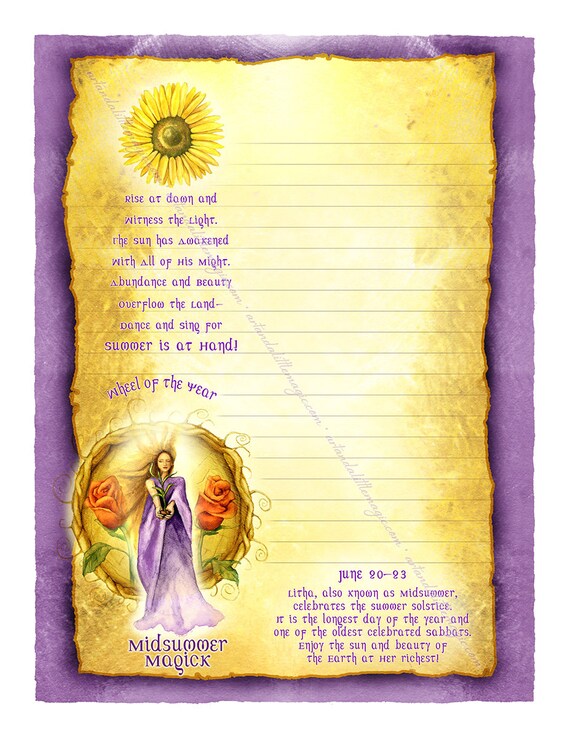 Rise at dawn and
witness the light.
The sun has awakened
with all of his might.
Abundance and beauty
overflow the land—
Dance and sing for
summer is at hand!
Wheel of the Year
Midsummer
Magick
June 20–23
Litha, also known as Midsummer,
celebrates the summer solstice.
It is the longest day of the year and
one of the oldest celebrated sabbats.
Enjoy the sun and beauty of
the Earth at Her richest!
artandalittlemagic.com · artandalittlemagic.com · artandalittlemagic.com